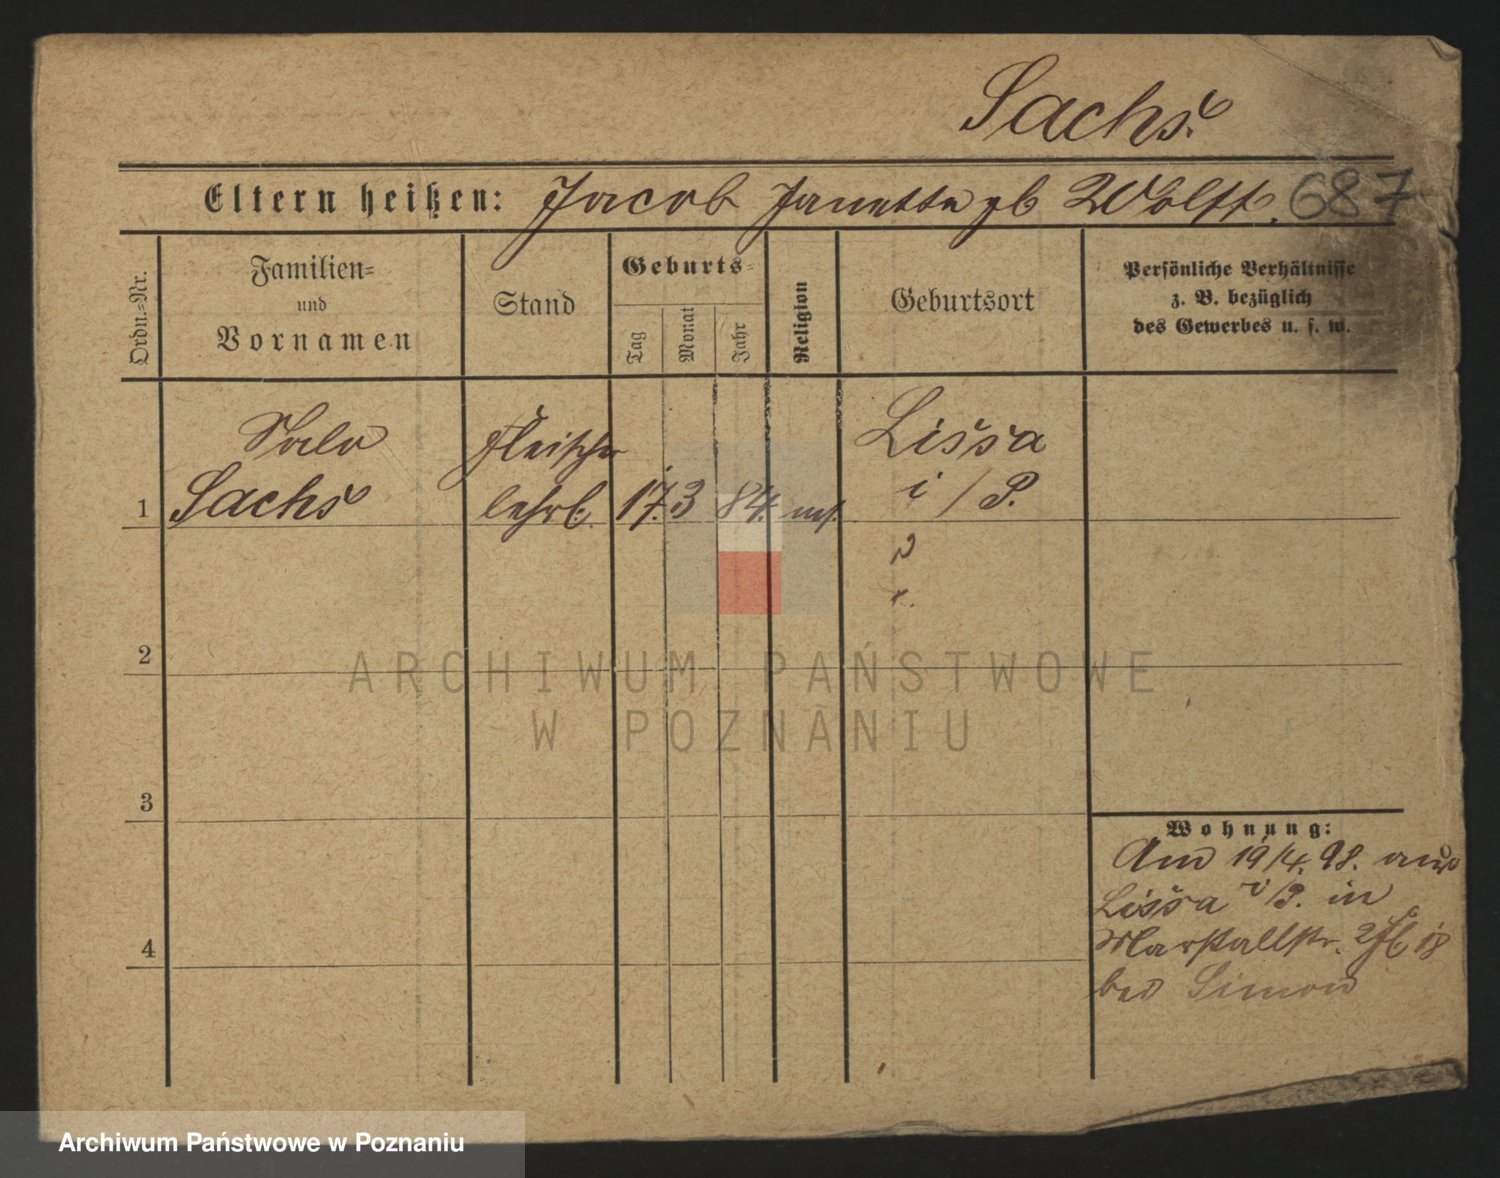 Sachs.
Eltern heißen: Jacob Janette gb Wolff. 687
Ordn.=Nr.
Familien=
und
Vornamen
Stand
Geburts=
Tag
Monat
Jahr
Religion
Geburtsort
Persönliche Verhältnisse
z. B. bezüglich
des Gewerbes u. s. w.
Salo
Sachs
Fleischer
lehrl.
1
17. 3 84.
mos.
Lissa
i/P.
2
3
4
Wohnung:
Am 19/4. 98. aus
Lissa i/P. in
Marstallstr.
bei Simon
ARCHIWUM PAŃSTWOWE
W POZNANIU
Archiwum Państwowe w Poznaniu